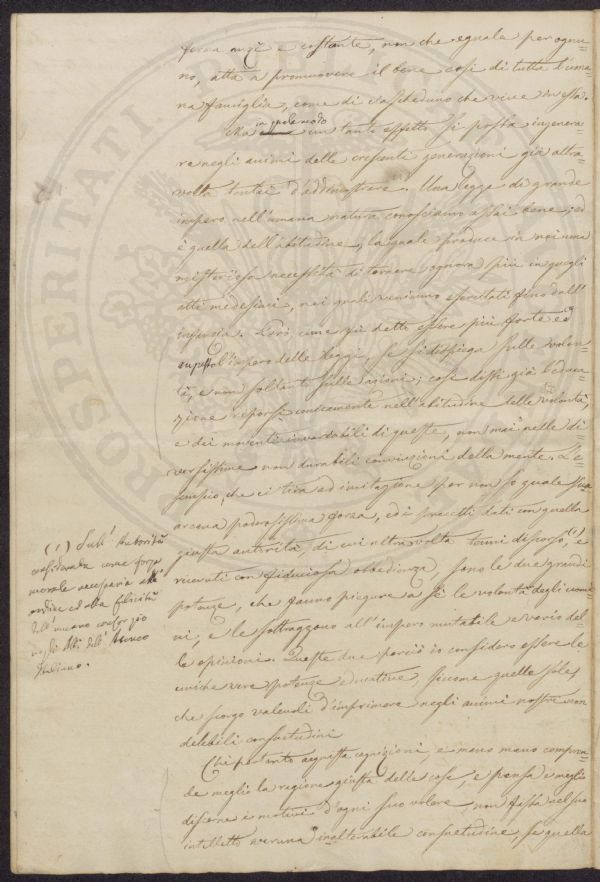 forza anzi e costante, non che eguale per ognu=
no, atta a promuovere il bene così di tutta l'uma=
na famiglia, come di ciascheduno che vive in essa.
Ma in qual modo un tanto effetto si possa ingenera=
re negli animi delle crescenti generazioni già altra
volta tentai d'addimostrare. Una legge di grande
impero nell'umana natura conosciamo assai bene, ed
è quella dell'abitudine, la quale produce in noi una
misteriosa necessità di tornare ognora più in quegli
atti medesimi, nei quali veniamo esercitati fino dall'
infanzia. Però come già detto essere più forte e
l'impero delle leggi, se si dispiega sulle volon=
tà, e non soltanto sulle azioni; così dissi già l'educa=
zione riporsi unicamente nell'abitudine delle volontà,
e dei moventi invariabili di queste, non mai nelle di=
versissime non durabili convinzioni della mente. L'e
sempio, che ci tira ad imitazione per non so quale sua
arcana poderosissima forza, ed i precetti dati con quella
giusta autorità, di cui altra volta tenni discorso, (1) e
ricevuti con fiduciosa obbedienza, sono le due grandi
potenze, che fanno piegare a sè le volontà degli uomi=
ni, e le sottraggono all'impero mutabile e vario del=
le opinioni. Queste due perciò io considero essere le
uniche vere potenze educative, siccome quelle sole,
che scorgo valevoli d'imprimere negli animi nostri non
delebili consuetudini
Chi pertanto acquista cognizioni, e mano mano compren=
de meglio la ragione giusta delle cose, e pensa meglio
disporre i motivi d'ogni suo volere non fassi nel suo
intelletto veruna inalterabile consuetudine, se quella
(1) Sull'Autorità
considerata come forza
morale necessaria all'
ordine ed alla felicità
dell'umano consorzio
negli Atti dell'Ateneo
Italiano.
PROSPERITATI PUBLICAE